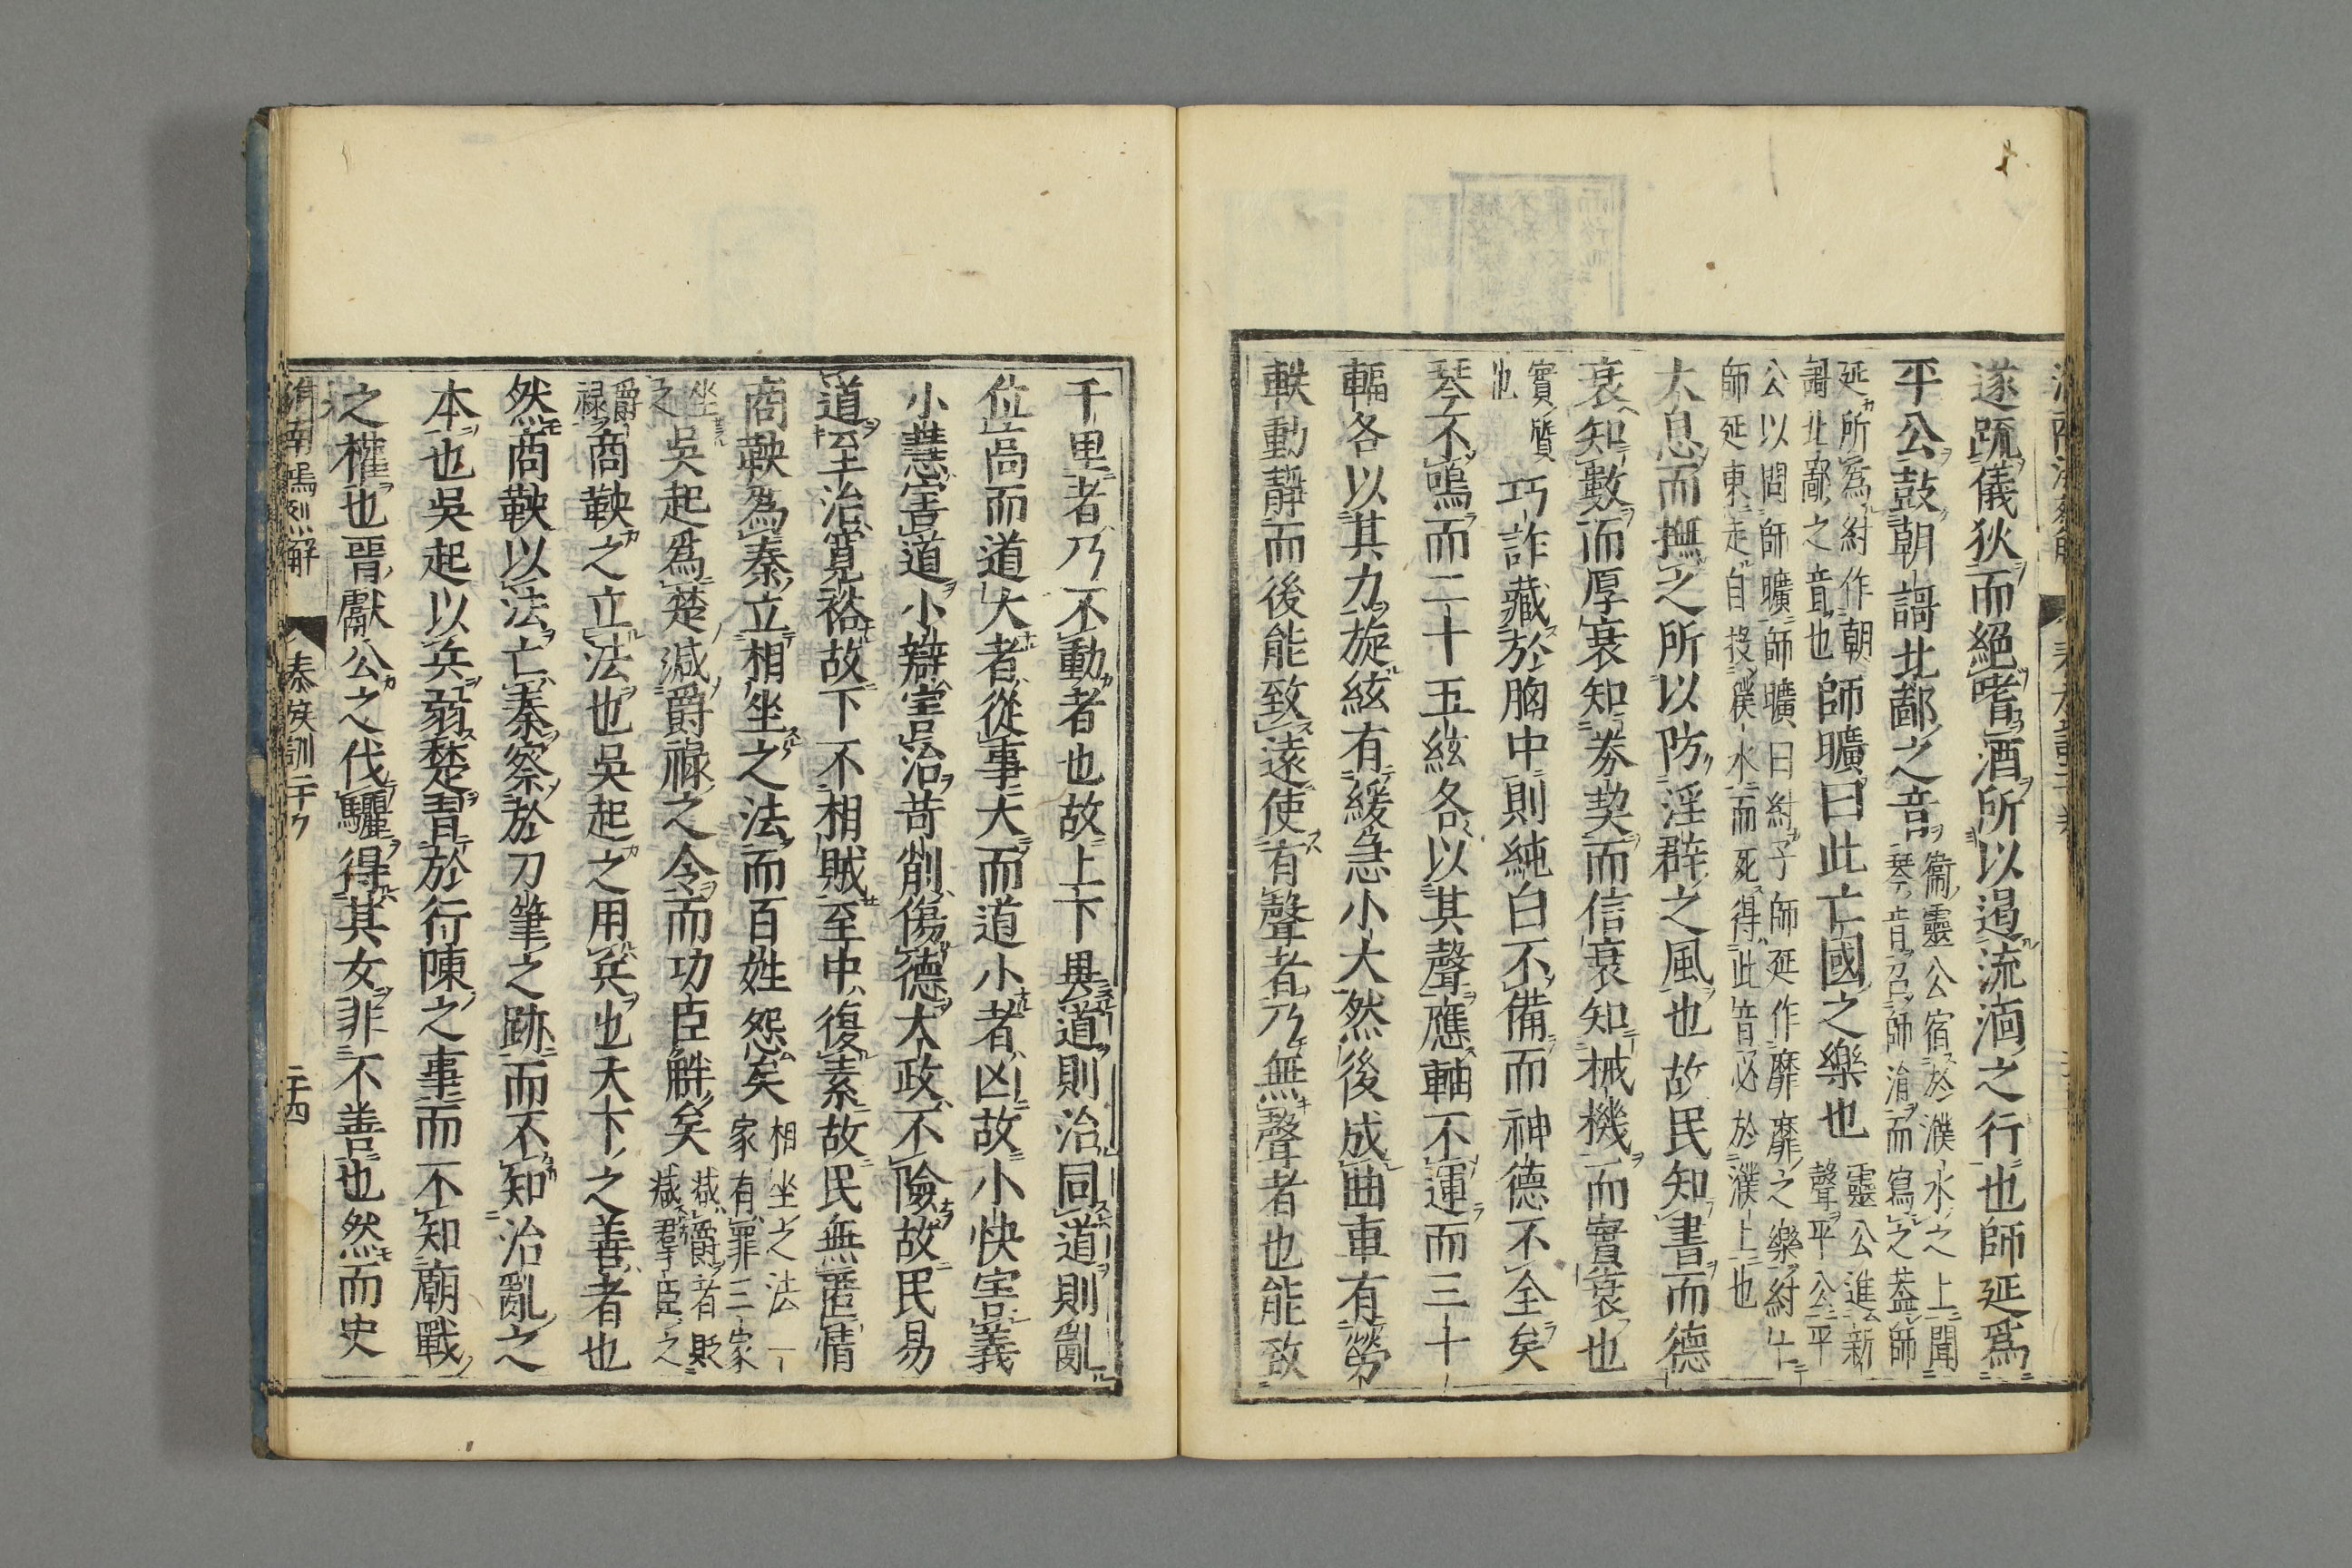 遂䟽儀狄而絕嗜酒所以遏流湎之行也師延爲
平公鼓朝謌北鄙之音
衞靈公宿於濮水之上聞
琴音召師涓而寫之葢師
延所爲紂作朝
謌北鄙之音也
師曠曰此亡國之樂也
靈公進新
聲平公平
公以問師曠師曠曰紂子師延作靡靡之樂紂亡
師延東走自投濮水而死得此音必於濮上也
太息而撫之所以防淫辟之風也故民知書而德
衰知數而厚衰知劵契而信衰知械機而實衰也
實質
也
巧詐藏於胸中則純白不備而神德不全矣
琴不鳴而二十五絃各以其聲應軸不運而三十
輻各以其力旋絃有緩急小大然後成曲車有勞
軼動靜而後能致遠使有聲者乃無聲者也能致
千里者乃不動者也故上下異道則治同道則亂
位高而道大者從事大而道小者凶故小快害義
小慧害道小辯害治苛削傷德大政不險故民易
道至治寬裕故下不相賊至中復素故民無匿情
商鞅爲秦立相坐之法而百姓怨矣
相坐之法一
家有罪三家
坐
之
吳起爲楚減爵祿之令而功臣畔矣
減爵者貶
減群臣之
爵
祿
商鞅之立法也吳起之用兵也天下之善者也
然商鞅以法亡秦察於刀筆之跡而不知治亂之
本也吳起以兵弱楚習於行陳之事而不知廟戰
之權也晋獻公之伐驪得其女非不善也然而史
淮南鴻烈解
泰族訓二十
二十四